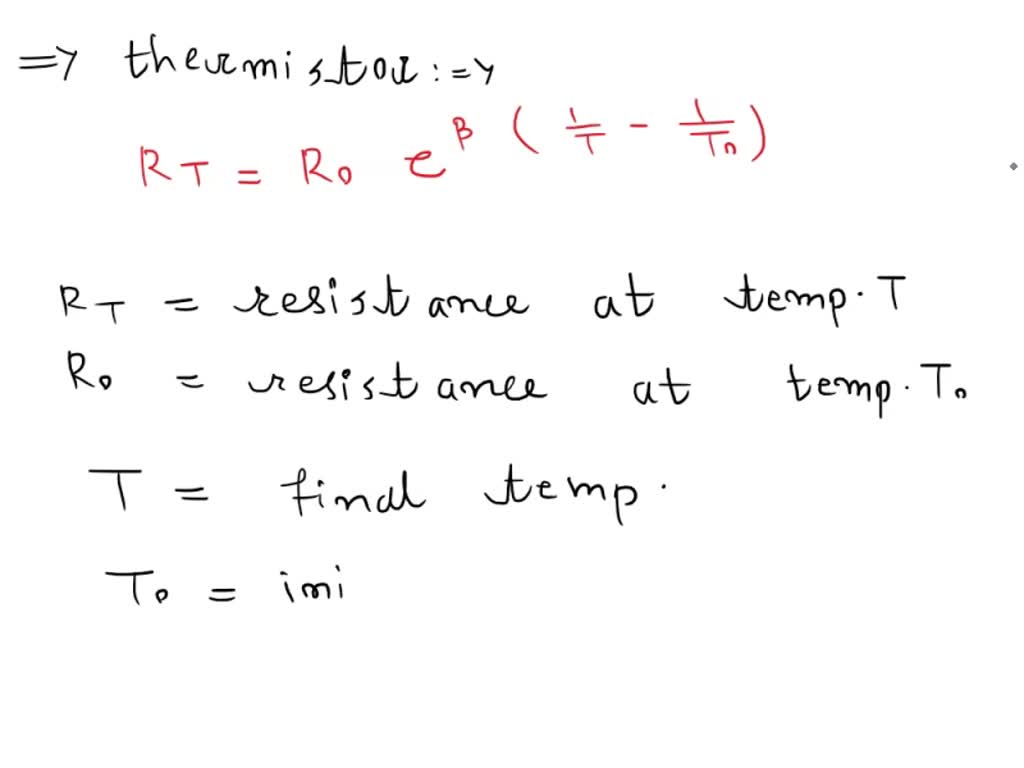 => thermistor :=>
R_T = R_0 e^β (1/T - 1/T_0)
R_T = resistance at temp. T
R_0 = resistance at temp. T_0
T = final temp.
T_0 = ini